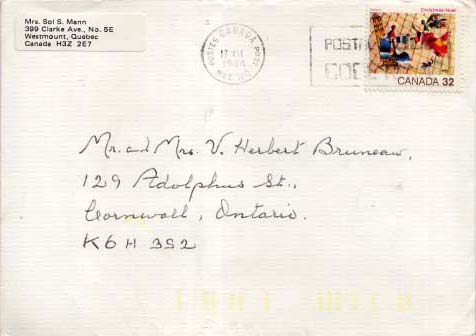 Mrs. Sol S. Mann
399 Clarke Ave., No. 5E
Westmount, Quebec
Canada H3Z 2E7
POSTES CANADA POST
1984
POSTA
CO
Christmas/Noël
CANADA 32
Mr. and Mrs. V. Herbert Bruneau,
129 Adolphus St.,
Cornwall, Ontario.
K6H 3S2